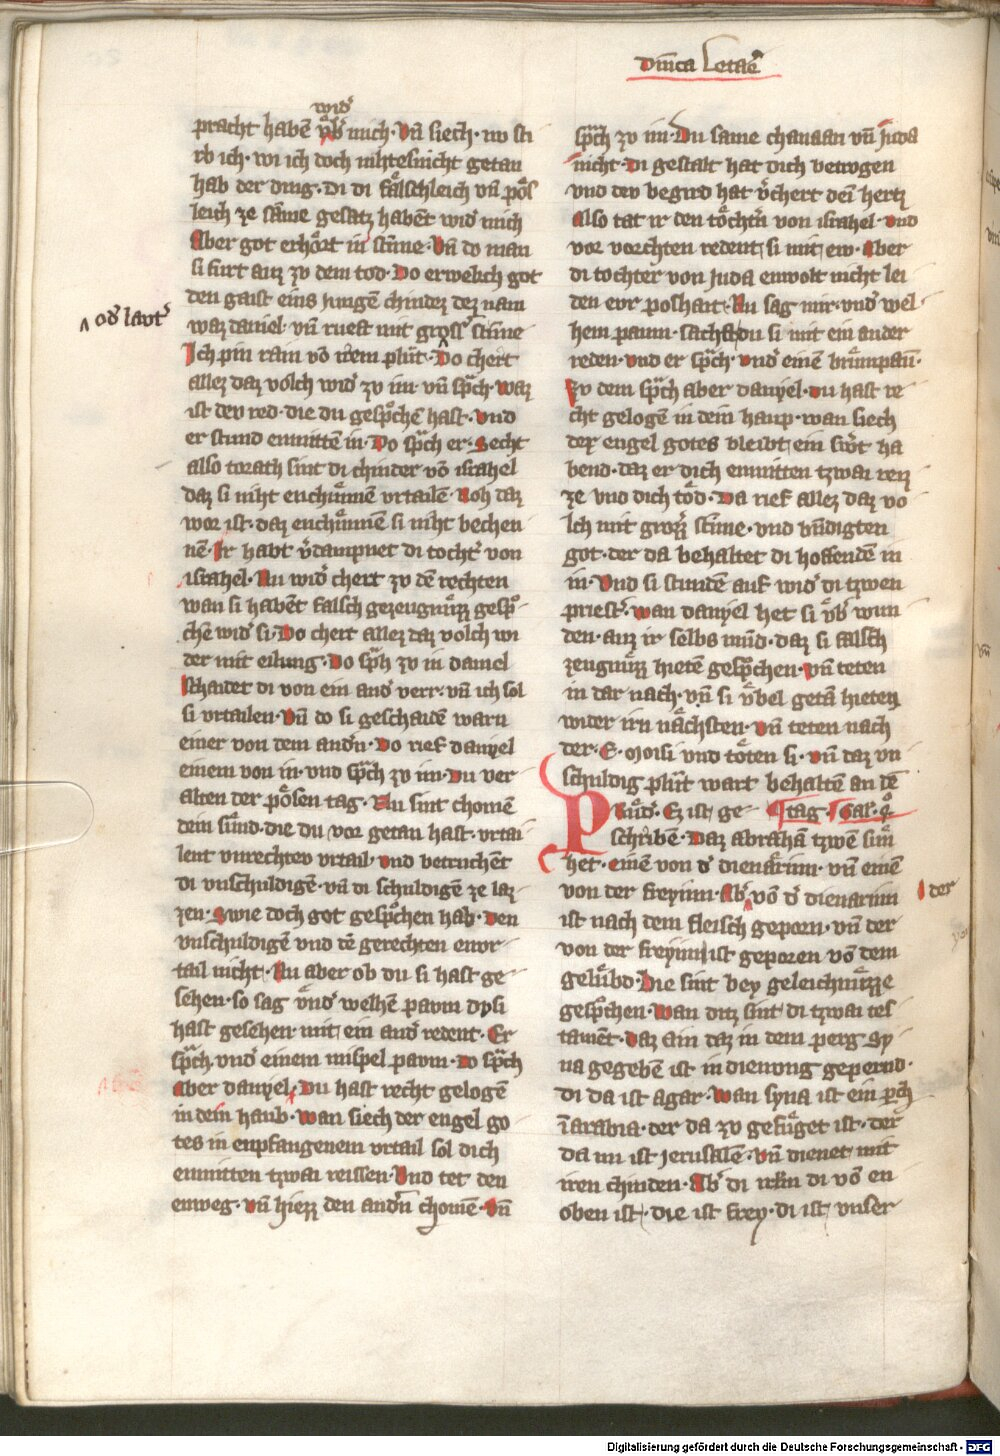 Dnica Letare
wider
pracht haben vber mich. Vnd siech. nv sti
rb ich. wi ich doch nihtesnicht getan
hab der ding. di di fälschleich vnd pös
leich ze same gesatz habent wider mich
Aber got erhört ir stimme. Vnd do man
si furt auz zv dem tod. Do erwekch got
den gaist eins jungen chindez dez nam
waz daniel. vnd rueft mit grosser stimme
^ oder lavter
Ich pin rain von irem plüt. Do chert
allez daz volch wider zv im. vnd sprach. waz
ist dev red. die du gesprochen hast. Vnd
er stund enmitten in. Do sprach er. Secht
also torath sint di chinder von israhel
daz si niht enchunnen vrtailen. Noh daz
wor ist. daz enchunnen si niht bechen
nen. Ir habt verdampnet di tochter von
israhel. Nu wider chert zv dem rechten
wan si habent falsch gezeugnüzz gespro
chen wider si. Do chert allez daz volch wi
der mit eilung. Do sprach zv in daniel
Schaidet di von ein ander verr. vnd ich sol
si vrtailen. Vnd do si geschaiden warn
einer von dem andern. Do rief danyel
einem von in. vnd sprach zv im. Du ver
alten der pösen tag. Nu sint chomen
dein sünd. die du vor getan hast. vrtai
lent vnrechtev vrtail. vnd betruchent
di vnschuldigen. vnd di schuldigen ze laz
zen. Swie doch got gesprochen hab. Den
vnschuldigen vnd den gerechten envr
tail nicht. Nu aber ob du si hast ge
sehen. so sag vnder welhen pavm dv si
hast gesehen mit ein ander redent. Er
sprach. vnder einem mispel pavm. Do sprach
aber danyel. Du hast recht gelogen
in dein haub. Wan siech der engel go
tes in enpfangenem vrtail sol dich
enmitten tzwai reissen. Vnd tet den
enweg. Vnd hiezz den andern chomen. Vnd
sprach zv im. Du same chanaan vnd juda
nicht. Di gestalt hat dich betrogen
vnd dev begird hat verchert dein hertz
Also tat ir den töchtern von israhel. Vnd
vor vorchten redent si mit ew. Aber
di tochter von Juda enwolt nicht lei
den evr poshait. Nu sag mir. vnder wel
hem paum. sachst du si mit ein ander
reden. Vnd er sprach. vnder einen brümpaum.
Zv dem sprach aber danyel. Du hast re
cht gelogen in dein haup. wan siech
der engel gotes bleibt ein swert ha
bend. daz er dich enmitten tzwai reiz
ze vnd dich töd. Da rief allez daz vo
lch mit grozzer stimme. vnd vndigten
got. der da behaltet di hoffenden in
in. Vnd si stunden auf wider di tzwen
priester. wan danyel het si vber wun
den. auz ir selbs mund. daz si falsch
zeugnüzz hieten gesprochen. Vnd teten
in dar nach. vnd si vbel getan hieten
wider irn nächsten. Vnd teten nach
der. E. Moisi vnd töten si. Vnd daz vn
schuldig plüt wart behalten an dem
tag. Gal. 4
Prüder. Ez ist ge
schriben. Daz abraham tzwen sün
het. einen von der dienärinn. vnd einen
von der freyinn. Aber von der dienarinn
der
ist nach dem fleisch geporn. vnd der
von der freyinn ist geporen von dem
gelübd. Die sint bey geleichnüzze
gesprochen. Wan ditz sint di tzwai tes
tament. Daz ain daz in dem perg Sy
na gegeben ist in dienvng gepernd.
di da ist agar. Wan syna ist ein perch
in arabia. der da zv gefüget ist. der
da nu ist jerusalem. Vnd dienet mit
iren chinden. Aber di irlm di von en
oben ist. die ist frey. di ist vnser
Digitalisierung gefördert durch die Deutsche Forschungsgemeinschaft - DFG